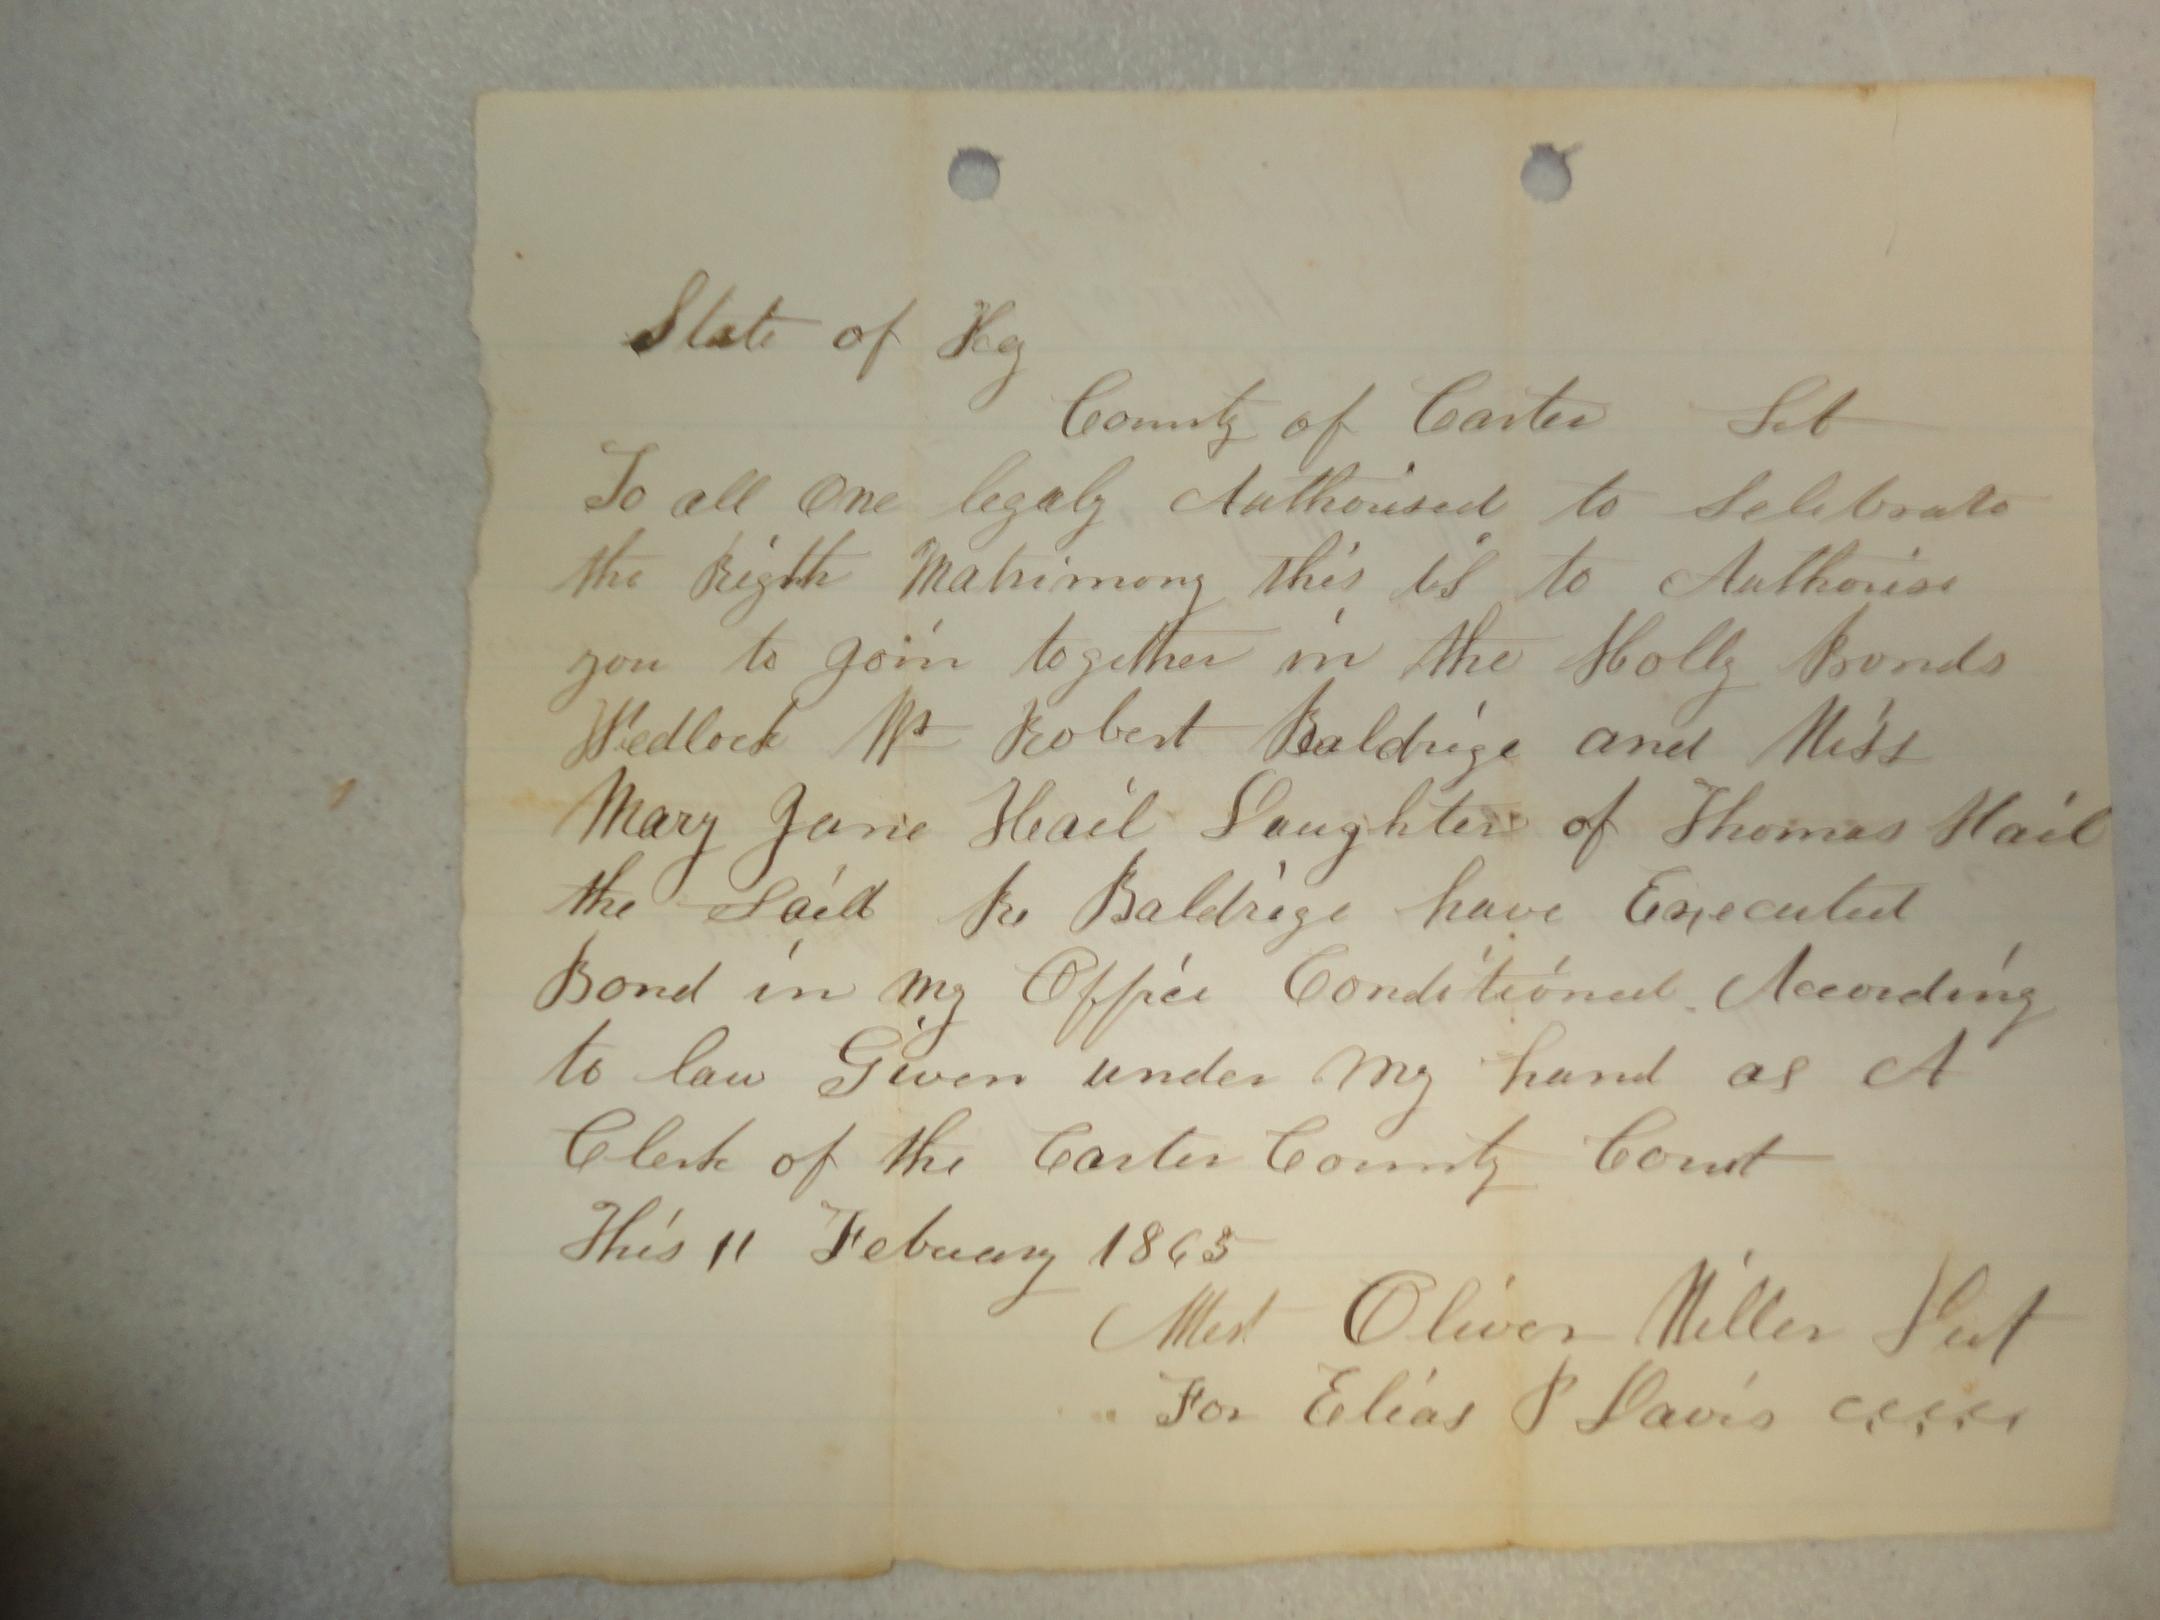 State of Ky
County of Carter Sct
To all One legaly Authorised to Selebrate
the Rigth Matrimony this is to Authorise
you to goin together in the Holly Bonds
Wedlock Mr Robert Baldrige and Miss
Mary Jane Hail Daughter of Thomas Hail
the Said R Baldrige have Executed
Bond in my Office Conditioned According
to law Given under my hand as A
Clerk of the Carter County Court
This 11 Febuary 1865
Attest Oliver Miller Dept
For Elias P Davis